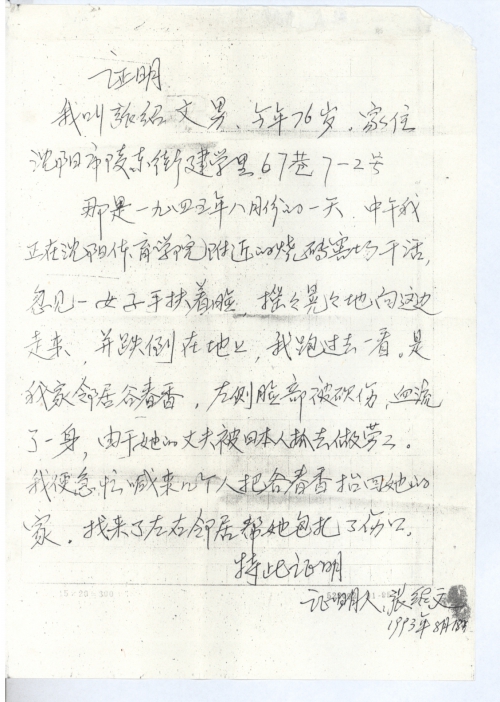 证明
我叫张绍文 男、今年76岁．家住
沈阳市陵东街建学里67巷7-2号
那是一九四五年八月份的一天．中午我
正在沈阳体育学院附近的烧砖窑场干活，
忽见一女子手扶着脸，摇々晃々地向这边
走来、并跌倒在地上，我跑过去一看。是
我家邻居谷春香，左则脸部被砍伤，血流
了一身，由于她的丈夫被日本人抓去做劳工。
我便急忙喊来几个人把谷春香抬回她的
家．找来了左右邻居帮她包扎了伤口．
特此证明
证明人：张绍文
1993年8月18日
15×20=300